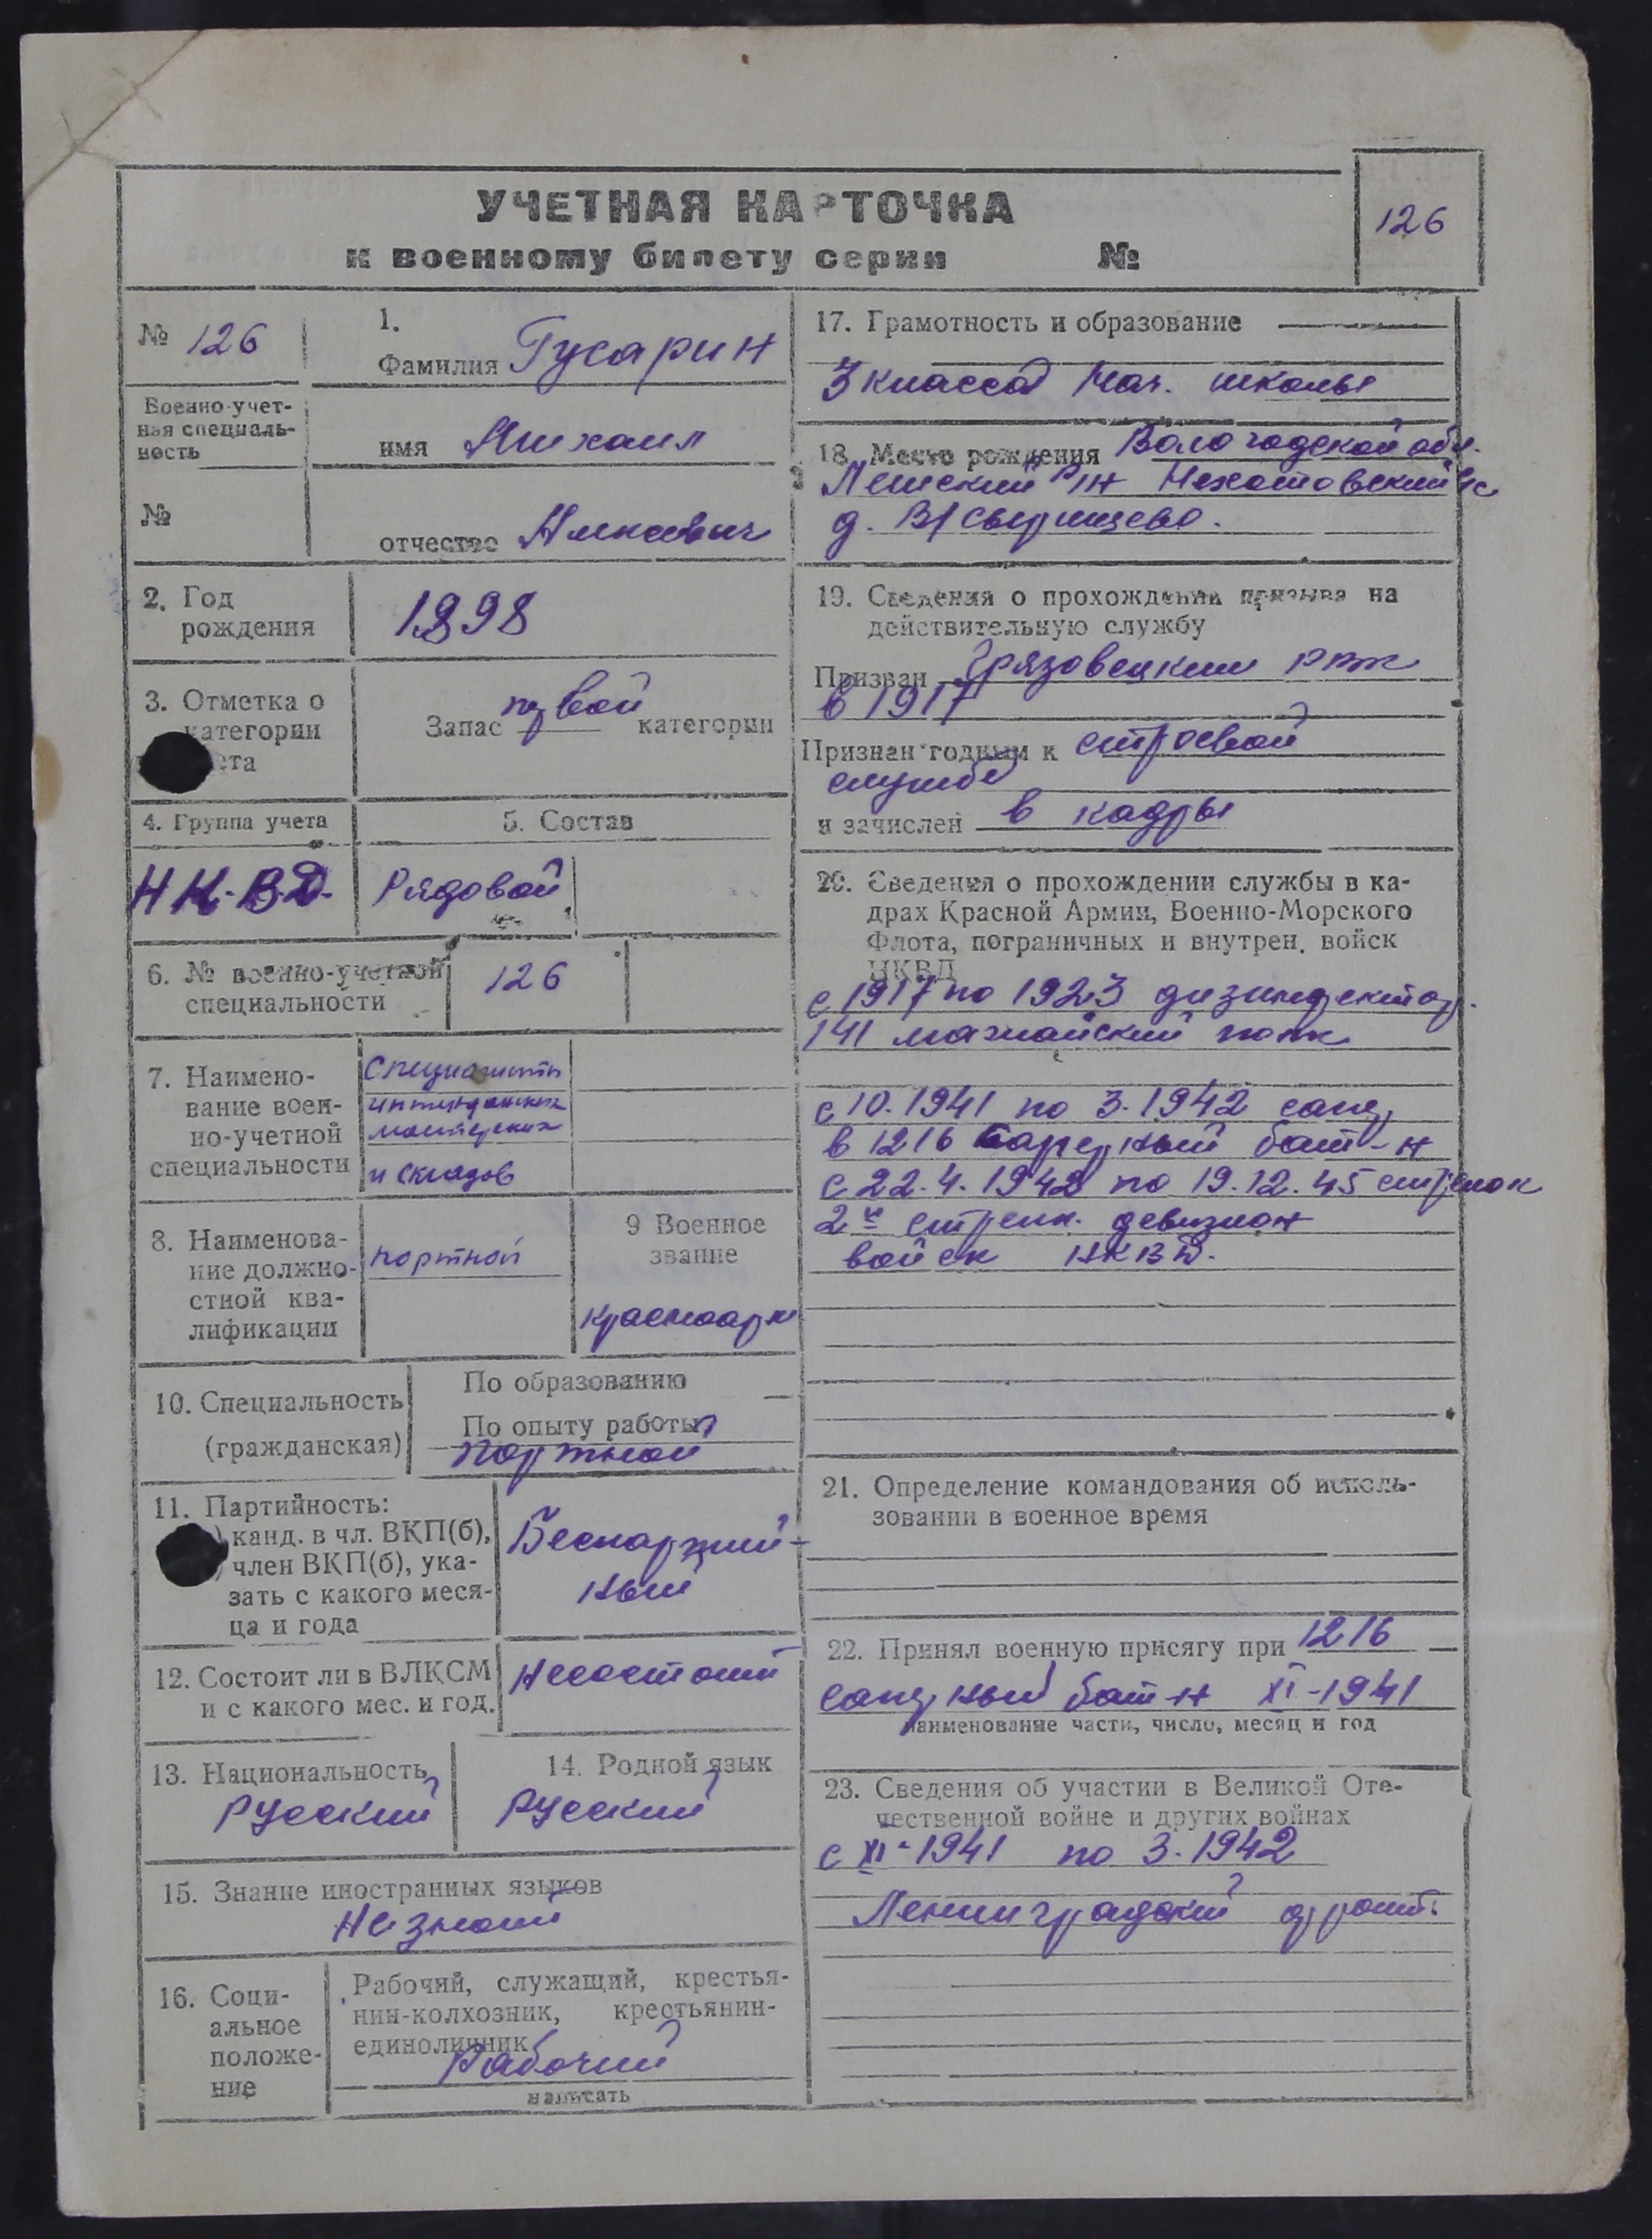 УЧЕТНАЯ КАРТОЧКА
к военному билету серии №
126
№ 126
1.
Фамилия Гусарин
Военно-учетная специальность
имя Михаил
№
отчество
2. Год рождения
1898
3. Отметка о категории
Запас первой категории
4. Группа учета
5. Состав
Н К. В Д.
Рядовой
6. № военно-учетной
специальности
126
7. Наимено-
вание воен-
но-учетной
специальности
Специалисты
интендантских
мастерских
и складов
8. Наименова-
ние должно-
стной ква-
лификации
портной
9 Военное
звание
красноарм
10. Специальность
(гражданская)
По образованию
По опыту работы
Портной
11. Партийность:
канд. в чл. ВКП(б),
член ВКП(б), ука-
зать с какого меся-
ца и года
Беспартий-
ный
12. Состоит ли в ВЛКСМ
и с какого мес. и год.
Несостоит
13. Национальность
Русский
14. Родной язык
Русский
15. Знание иностранных языков
Незнает
16. Соци-
альное
положе-
ние
Рабочий, служащий, крестья-
нин-колхозник, крестьянин-
единоличник
Рабочий
написать
17. Грамотность и образование
3 класса Нач. школы
18. Место рождения Вологодской обл.
рн
д.
19. Сведения о прохождении призыва на
действительную службу
Призван Грязовецким рвк
в 1917
Признан годным к строевой
службе
и зачислен в кадры
20. Сведения о прохождении службы в ка-
драх Красной Армии, Военно-Морского
Флота, пограничных и внутрен. войск
НКВД
с 1917 по 1923
141 полк
с 10.1941 по 3.1942
в 1216 бат-н
с 22.4.1942 по 19.12.45 стрелок
2й стрелк. девизион
войск НКВД.
21. Определение командования об исполь-
зовании в военное время
22. Принял военную присягу при 1216
бат-н XI-1941
наименование части, число, месяц и год
23. Сведения об участии в Великой Оте-
чественной войне и других войнах
с XI-1941 по 3.1942
Ленинградский фронт.